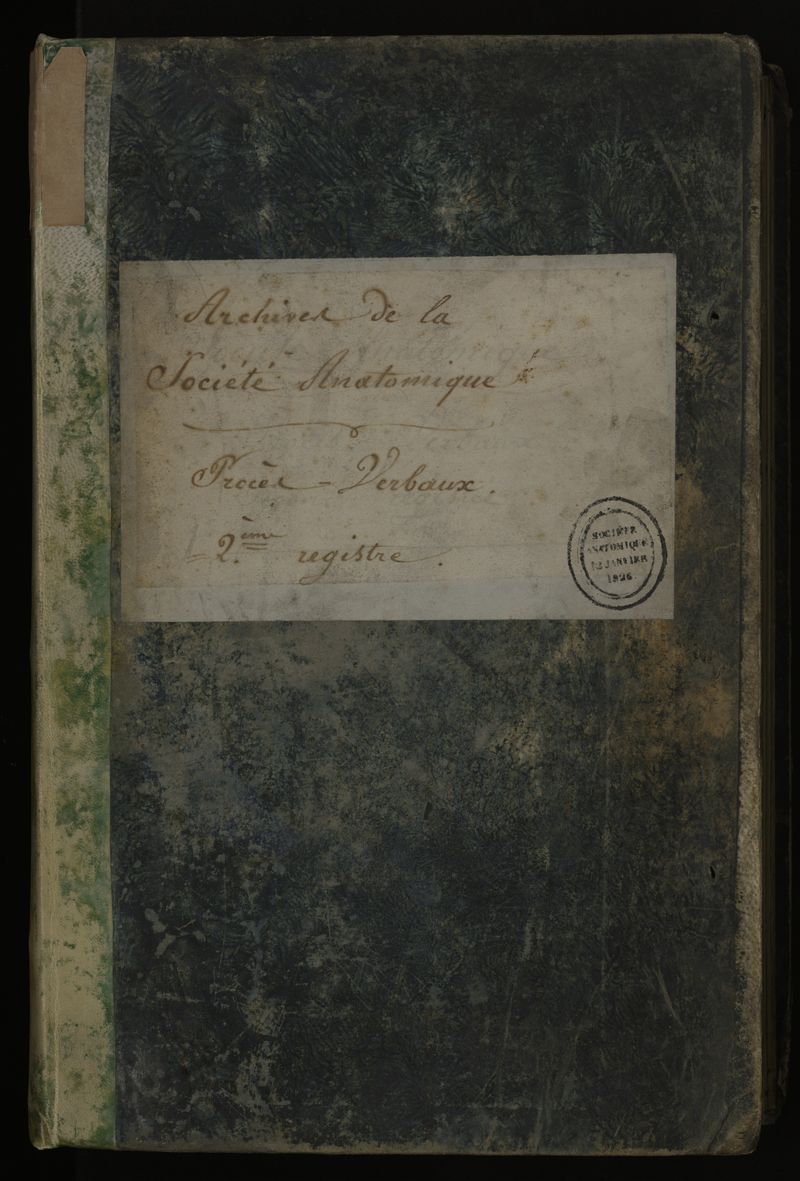 Archives de la
Société Anatomique
Procès-Verbaux.
2.ème registre.
SOCIÉTÉ
ANATOMIQUE
12 JANVIER
1826